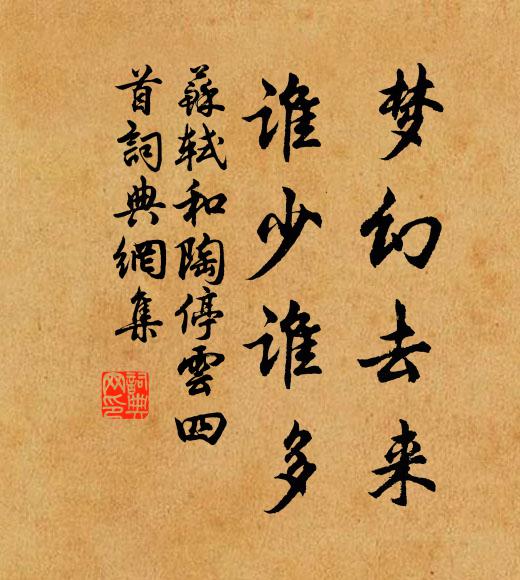 梦幻去来
谁少谁多
蘇軾和陶停雲四
首詞典網集
詞典網印